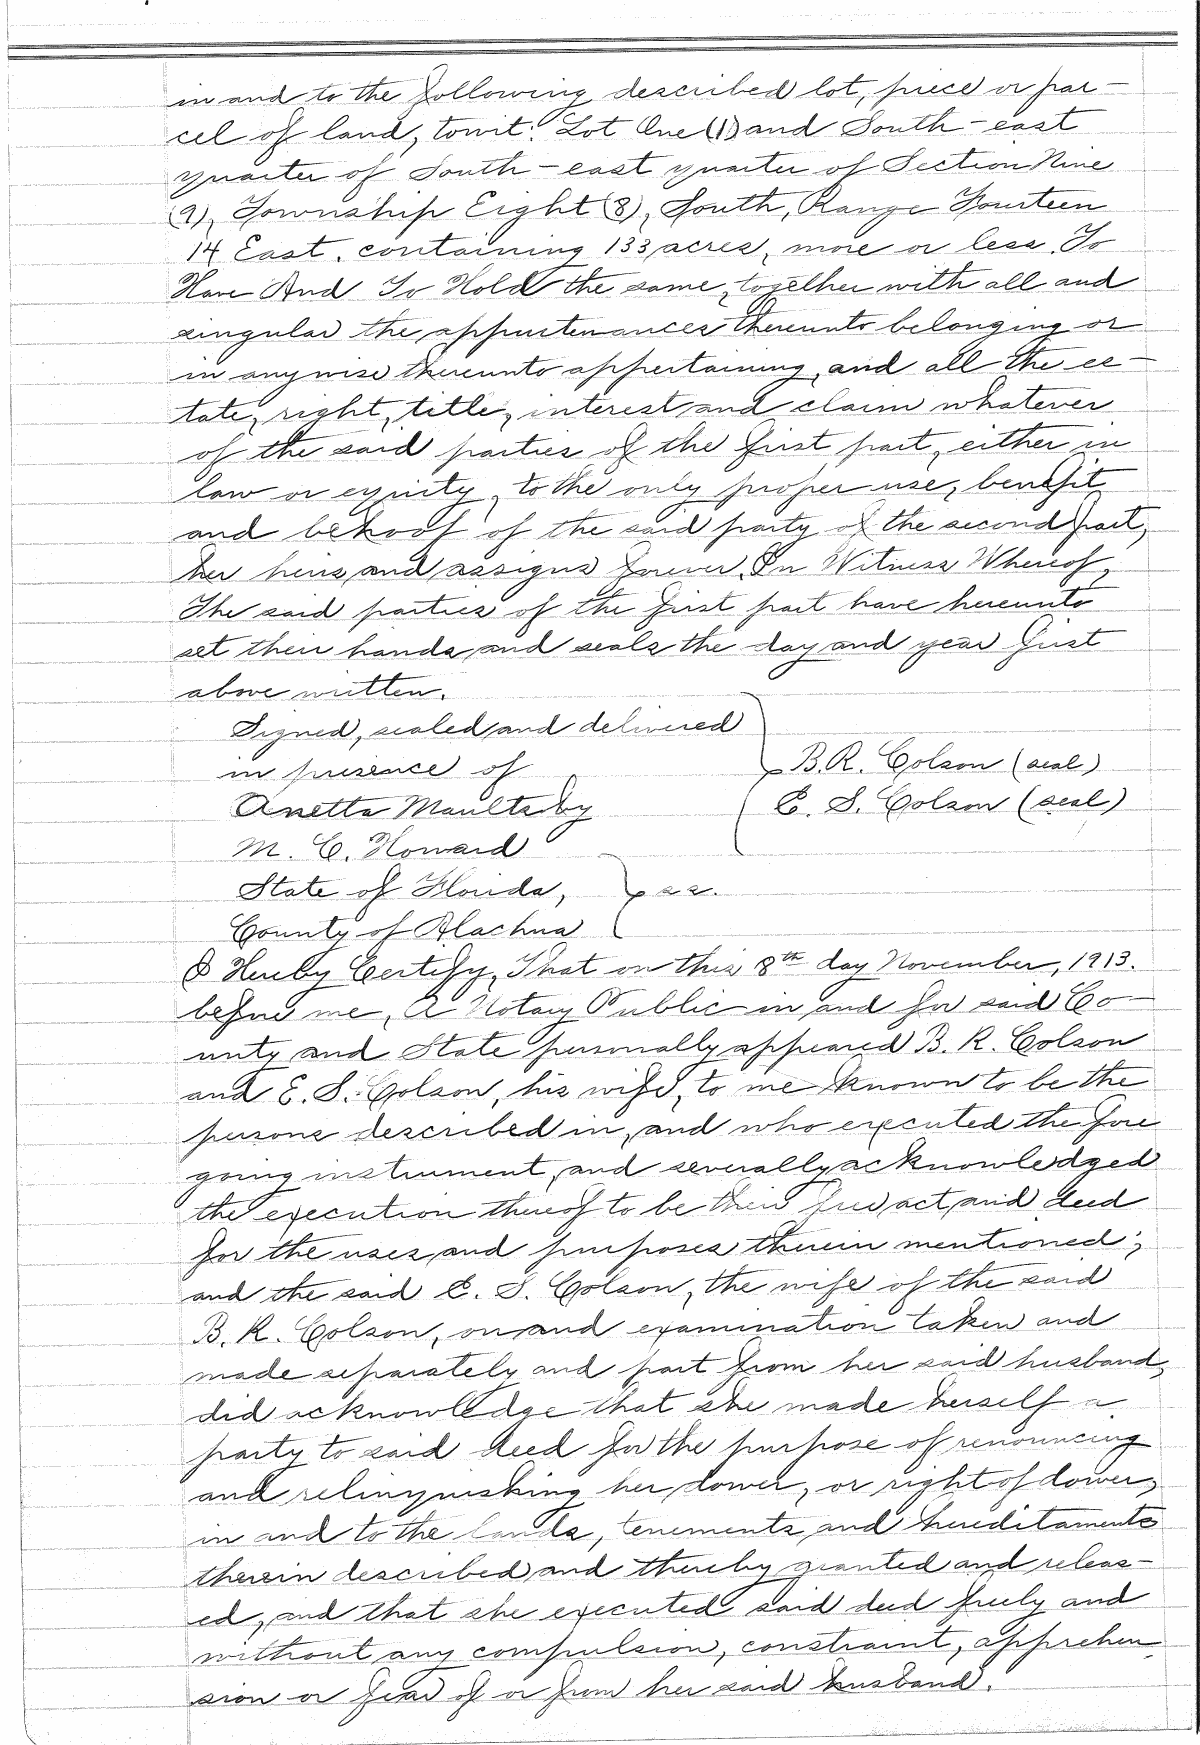 in and to the following described lot, piece or par-
cel of land, towit: Lot One (1) and South-east
quarter of South-east quarter of Section Nine
(9), Township Eight (8), South, Range Fourteen
14 East, containing 133 acres, more or less. To
Have And To Hold the same, together with all and
singular the appurtenances thereunto belonging or
in anywise thereunto appertaining, and all the es-
tate, right, title, interest and claim whatever
of the said parties of the first part, either in
law or equity, to the only proper use, benefit
and behoof of the said party of the second part,
her heirs and assigns forever. In Witness Whereof,
The said parties of the first part have hereunto
set their hands and seals the day and year first
above written.
Signed, sealed and delivered
in presence of B.R. Colson (seal)
Anetta Maultsby E. S. Colson (seal)
M. C. Howard
State of Florida, ss.
County of Alachua
I Hereby Certify, That on this 8th day November, 1913.
before me, A Notary Public in and for said Co-
unty and State personally appeared B. R. Colson
and E. S. Colson, his wife, to me known to be the
persons described in, and who executed the fore
going instrument, and severally acknowledged
the execution thereof to be their free act and deed
for the uses and purposes therein mentioned;
and the said E. S. Colson, the wife of the said
B. R. Colson, on and examination taken and
made separately and part from her said husband,
did acknowledge that she made herself a
party to said deed for the purpose of renouncing
and relinquishing her dower, or right of dower,
in and to the lands, tenements and hereditaments
therein described and thereby granted and releas-
ed, and that she executed said deed freely and
without any compulsion, constraint, apprehen-
sion or fear of or from her said husband.